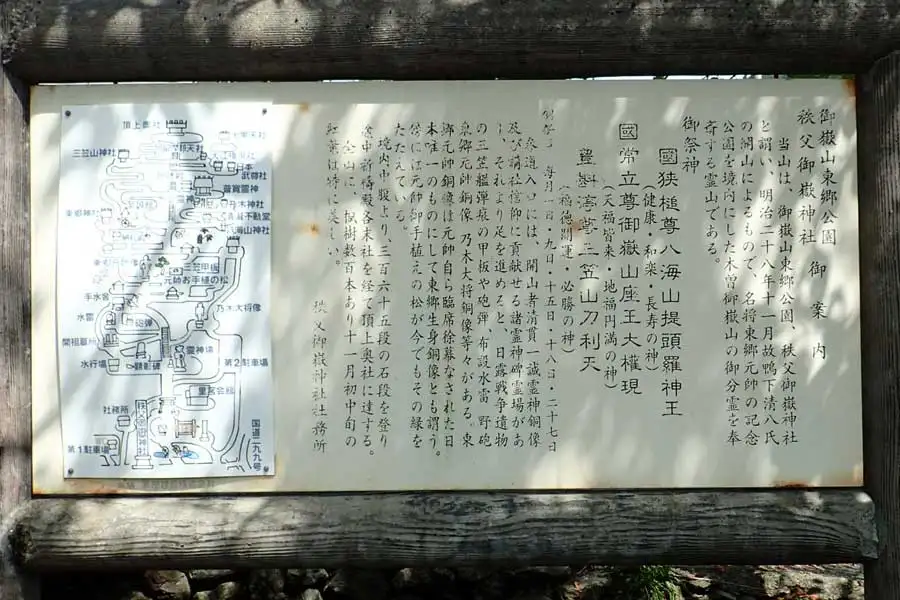 御嶽山東郷公園
秩父御嶽神社 御案内
当山は、御嶽山東郷公園、秩父御嶽神社
と謂い、明治二十八年十一月故鴨下清八氏
の開山によるもので、名将東郷元帥の記念
公園を境内にした木曽御嶽山の御分霊を奉
斎する霊山である。
御祭神
國狭槌尊八海山提頭羅神王
(健康・和楽・長寿の神)
國常立尊御嶽山座王大權現
(天福皆来・地福円満の神)
豊斟渟尊三笠山刀利天
(福徳開運・必勝の神)
例祭日 毎月一日・九日・十五日・十八日・二十七日
参道入り口には、開山者清貫一誠霊神銅像
及び講社信仰に貢献せる諸霊神碑霊場があ
り、それより足を進めると、日露戦争遺物
の三笠艦弾痕の甲板や砲弾、布設水雷、野砲
東郷元帥銅像、乃木大将銅像等々がある。東
郷元帥銅像は元帥自ら臨席徐幕なされた日
本唯一のものにして東郷生身銅像とも謂う。
傍には元帥御手植えの松が今でもその緑を
たたえている。
境内中腹より、三百六十五段の石段を登り
途中祈祷殿各末社を経て頂上奥社に達する。
全山に、楓樹数百本あり十一月初中旬の
紅葉は特に美しい。
秩父御嶽神社社務所
頂上御社
三笠山神社
日本
武尊社
普寛霊神
乃木神社
清瀧不動堂
八海山神社
東郷神社
三笠甲板
元帥お手植の松
手水舎
水雷
砲弾
乃木大将像
開祖墓所
霊神場
水行場
顕彰碑
第2駐車場
里宮会館
社務所
第1駐車場
国道二九九号